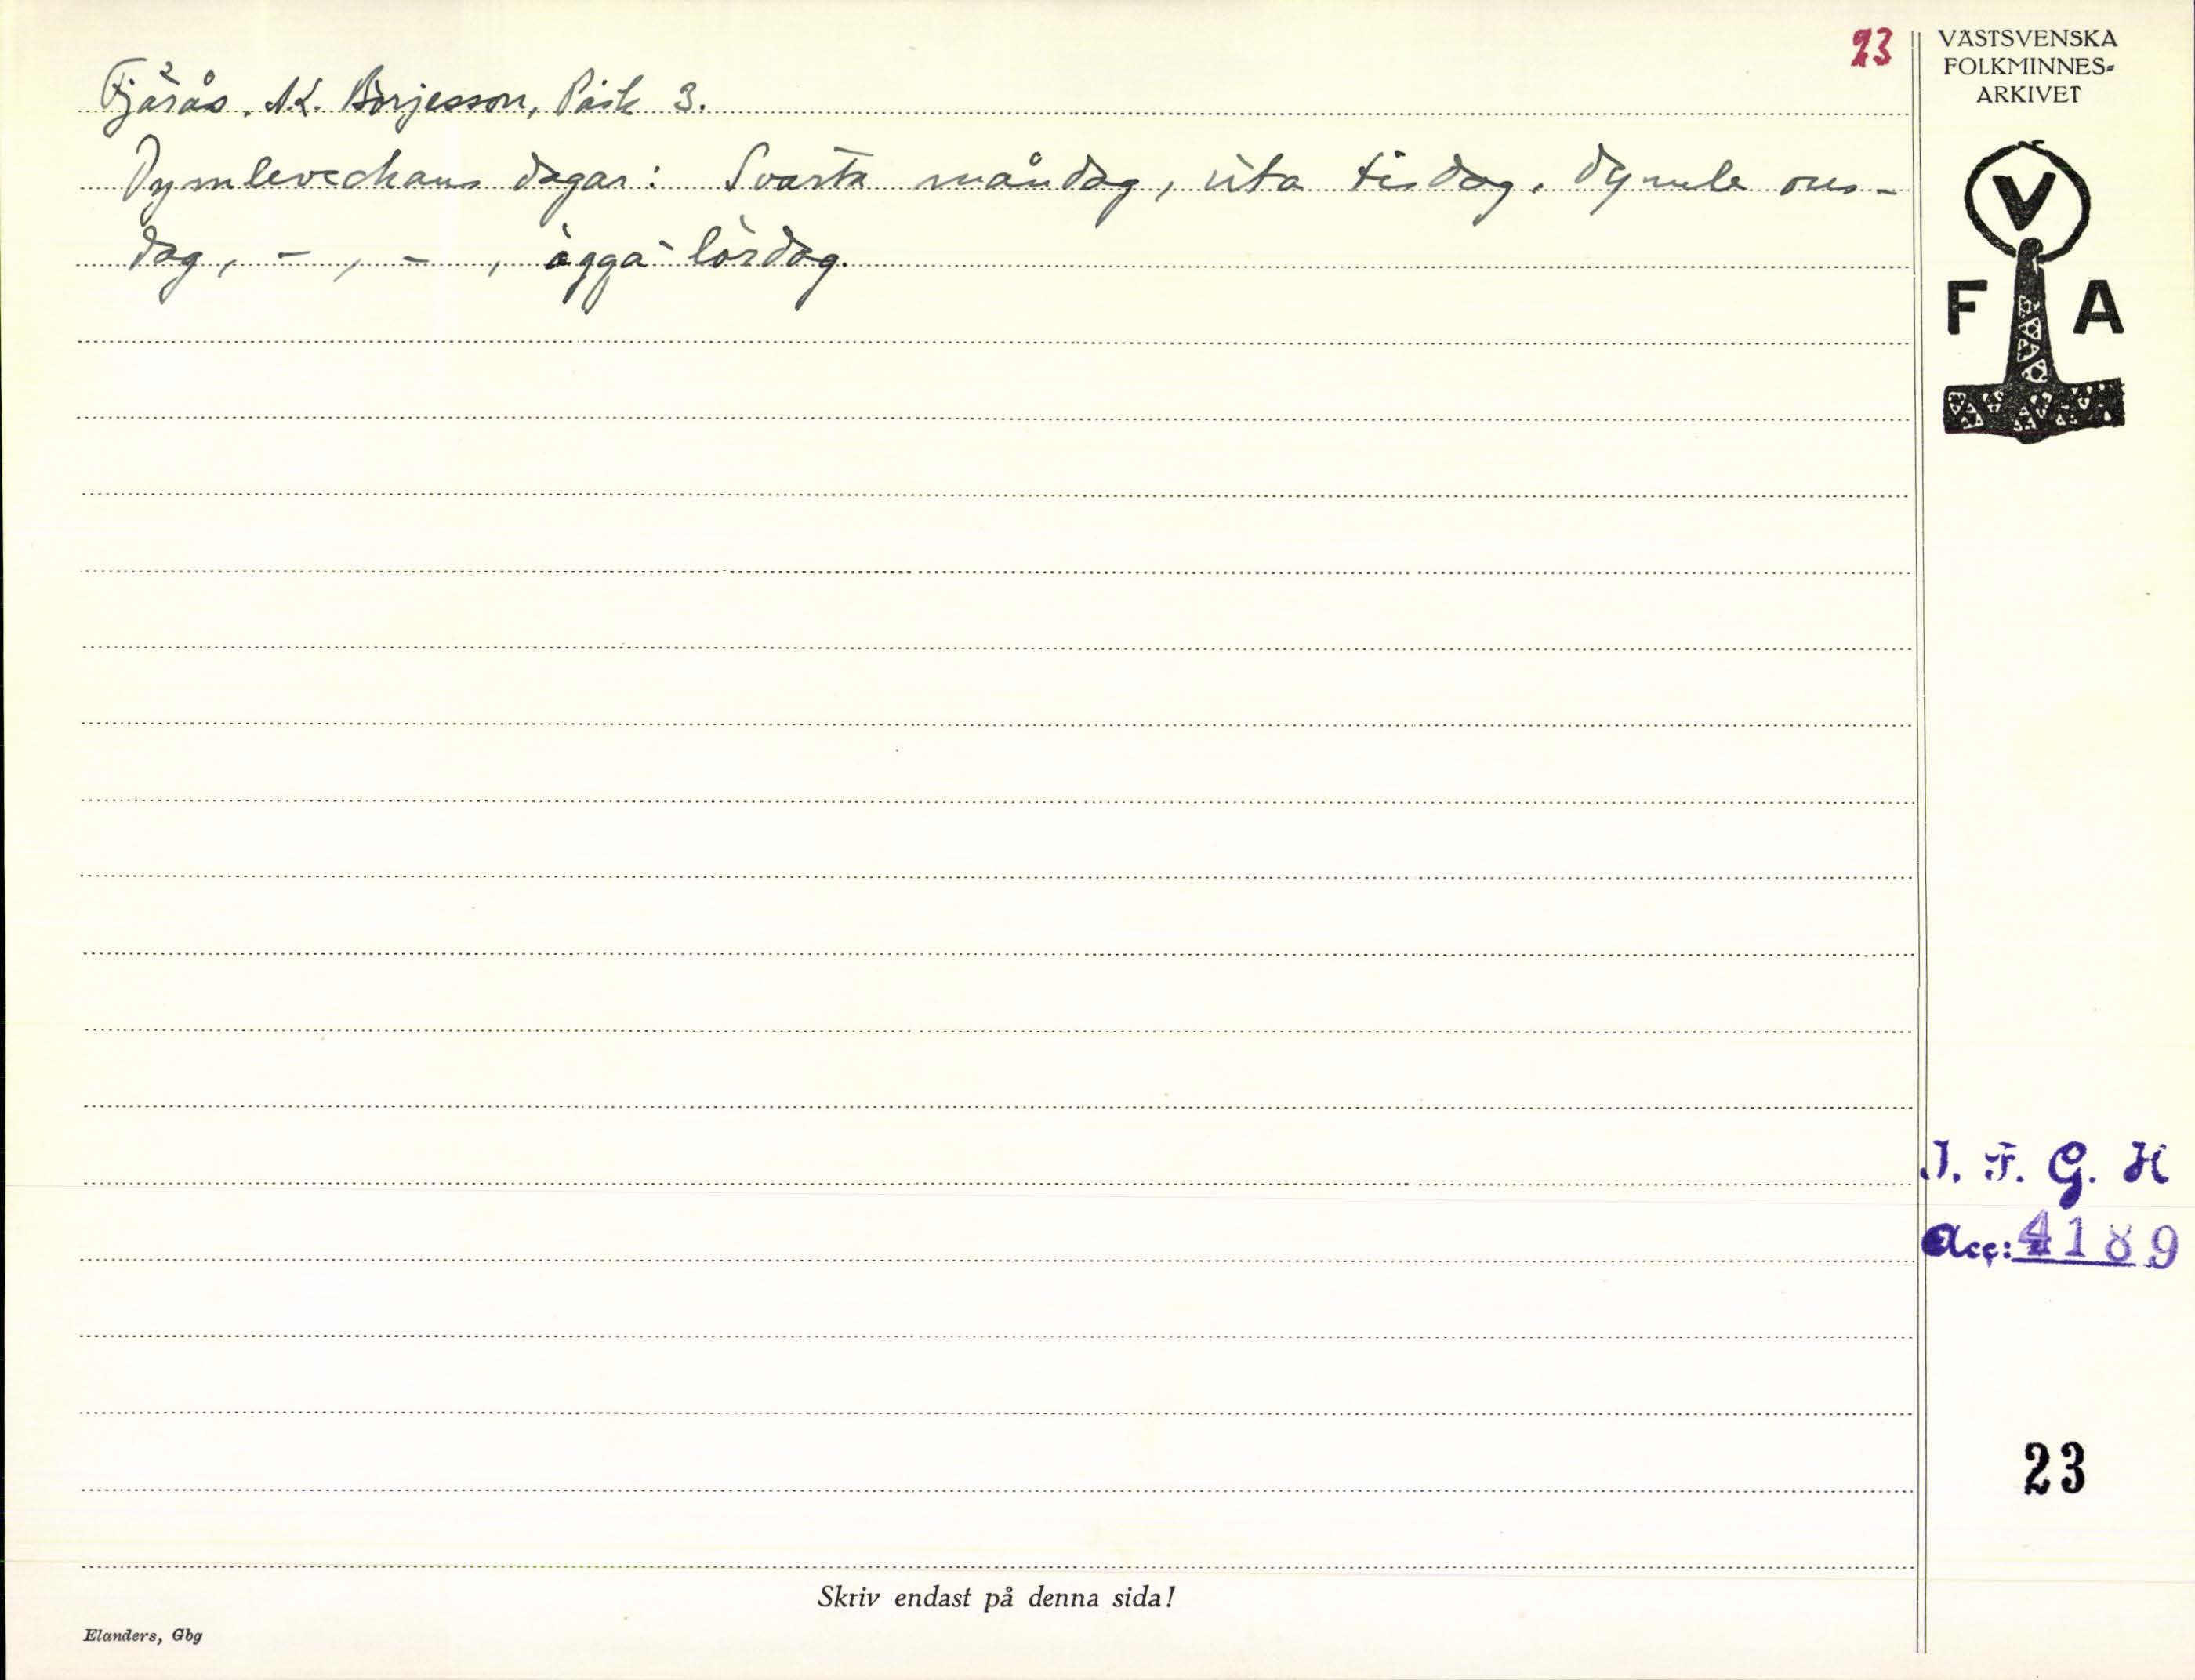 23
Fjärås. AK. Börjesson, Påsk 3.
Dymleveckans dagar: Svarta måndag, vita tisdag, dymle ons-
dag, - , - , ägga-lördag.
VÄSTSVENSKA
FOLKMINNES-
ARKIVET
V
F A
I. F. G. H
Acc: 4189
23
Skriv endast på denna sida!
Elanders, Gbg